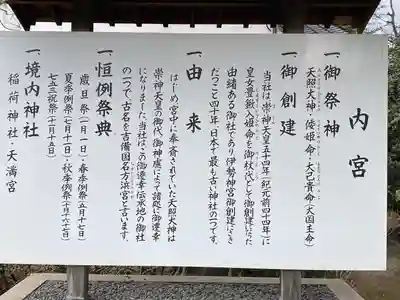 内宮
一、御祭神
天照大神・倭姫命・大己貴命(大国主命)
一、御創建
当社は崇神天皇五十四年(紀元前四十四年)に
皇女豊鍬入姫命を御杖代として御創建になった
由緒ある御社であり伊勢神宮御創建にさき
だつこと四十年、日本で最も古い神社の一つです。
一、由来
はじめ宮中に奉斎されていた天照大神は
崇神天皇の御代、御神慮によって諸処に御遷幸
になりました。当社はこの御遷幸伝承地の御社
の一つで、古名を吉備国名方浜宮と言います。
一、恒例祭典
歳旦祭(一月一日)・春季例祭(五月十七日)
夏季例祭(七月十一日)・秋季例祭(十月十六・十七日)
七五三祝祭(十一月十五日)
一、境内神社
稲荷神社・天満宮